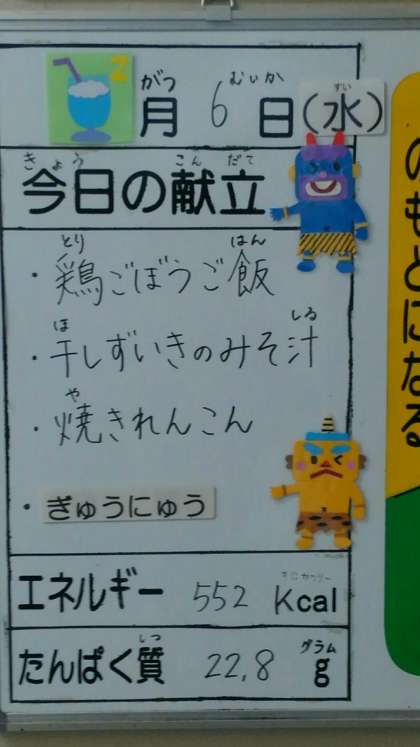 2
がつ むいか すい
月 6 日(水)
きょう こんだて
今日の献立
とり はん
・鶏ごぼうご飯
ほ しる
・干しずいきのみそ汁
や
・焼きれんこん
・ぎゅうにゅう
キロカロリー
エネルギー 552 Kcal
しつ グラム
たんぱく質 22.8 g
のもとになる